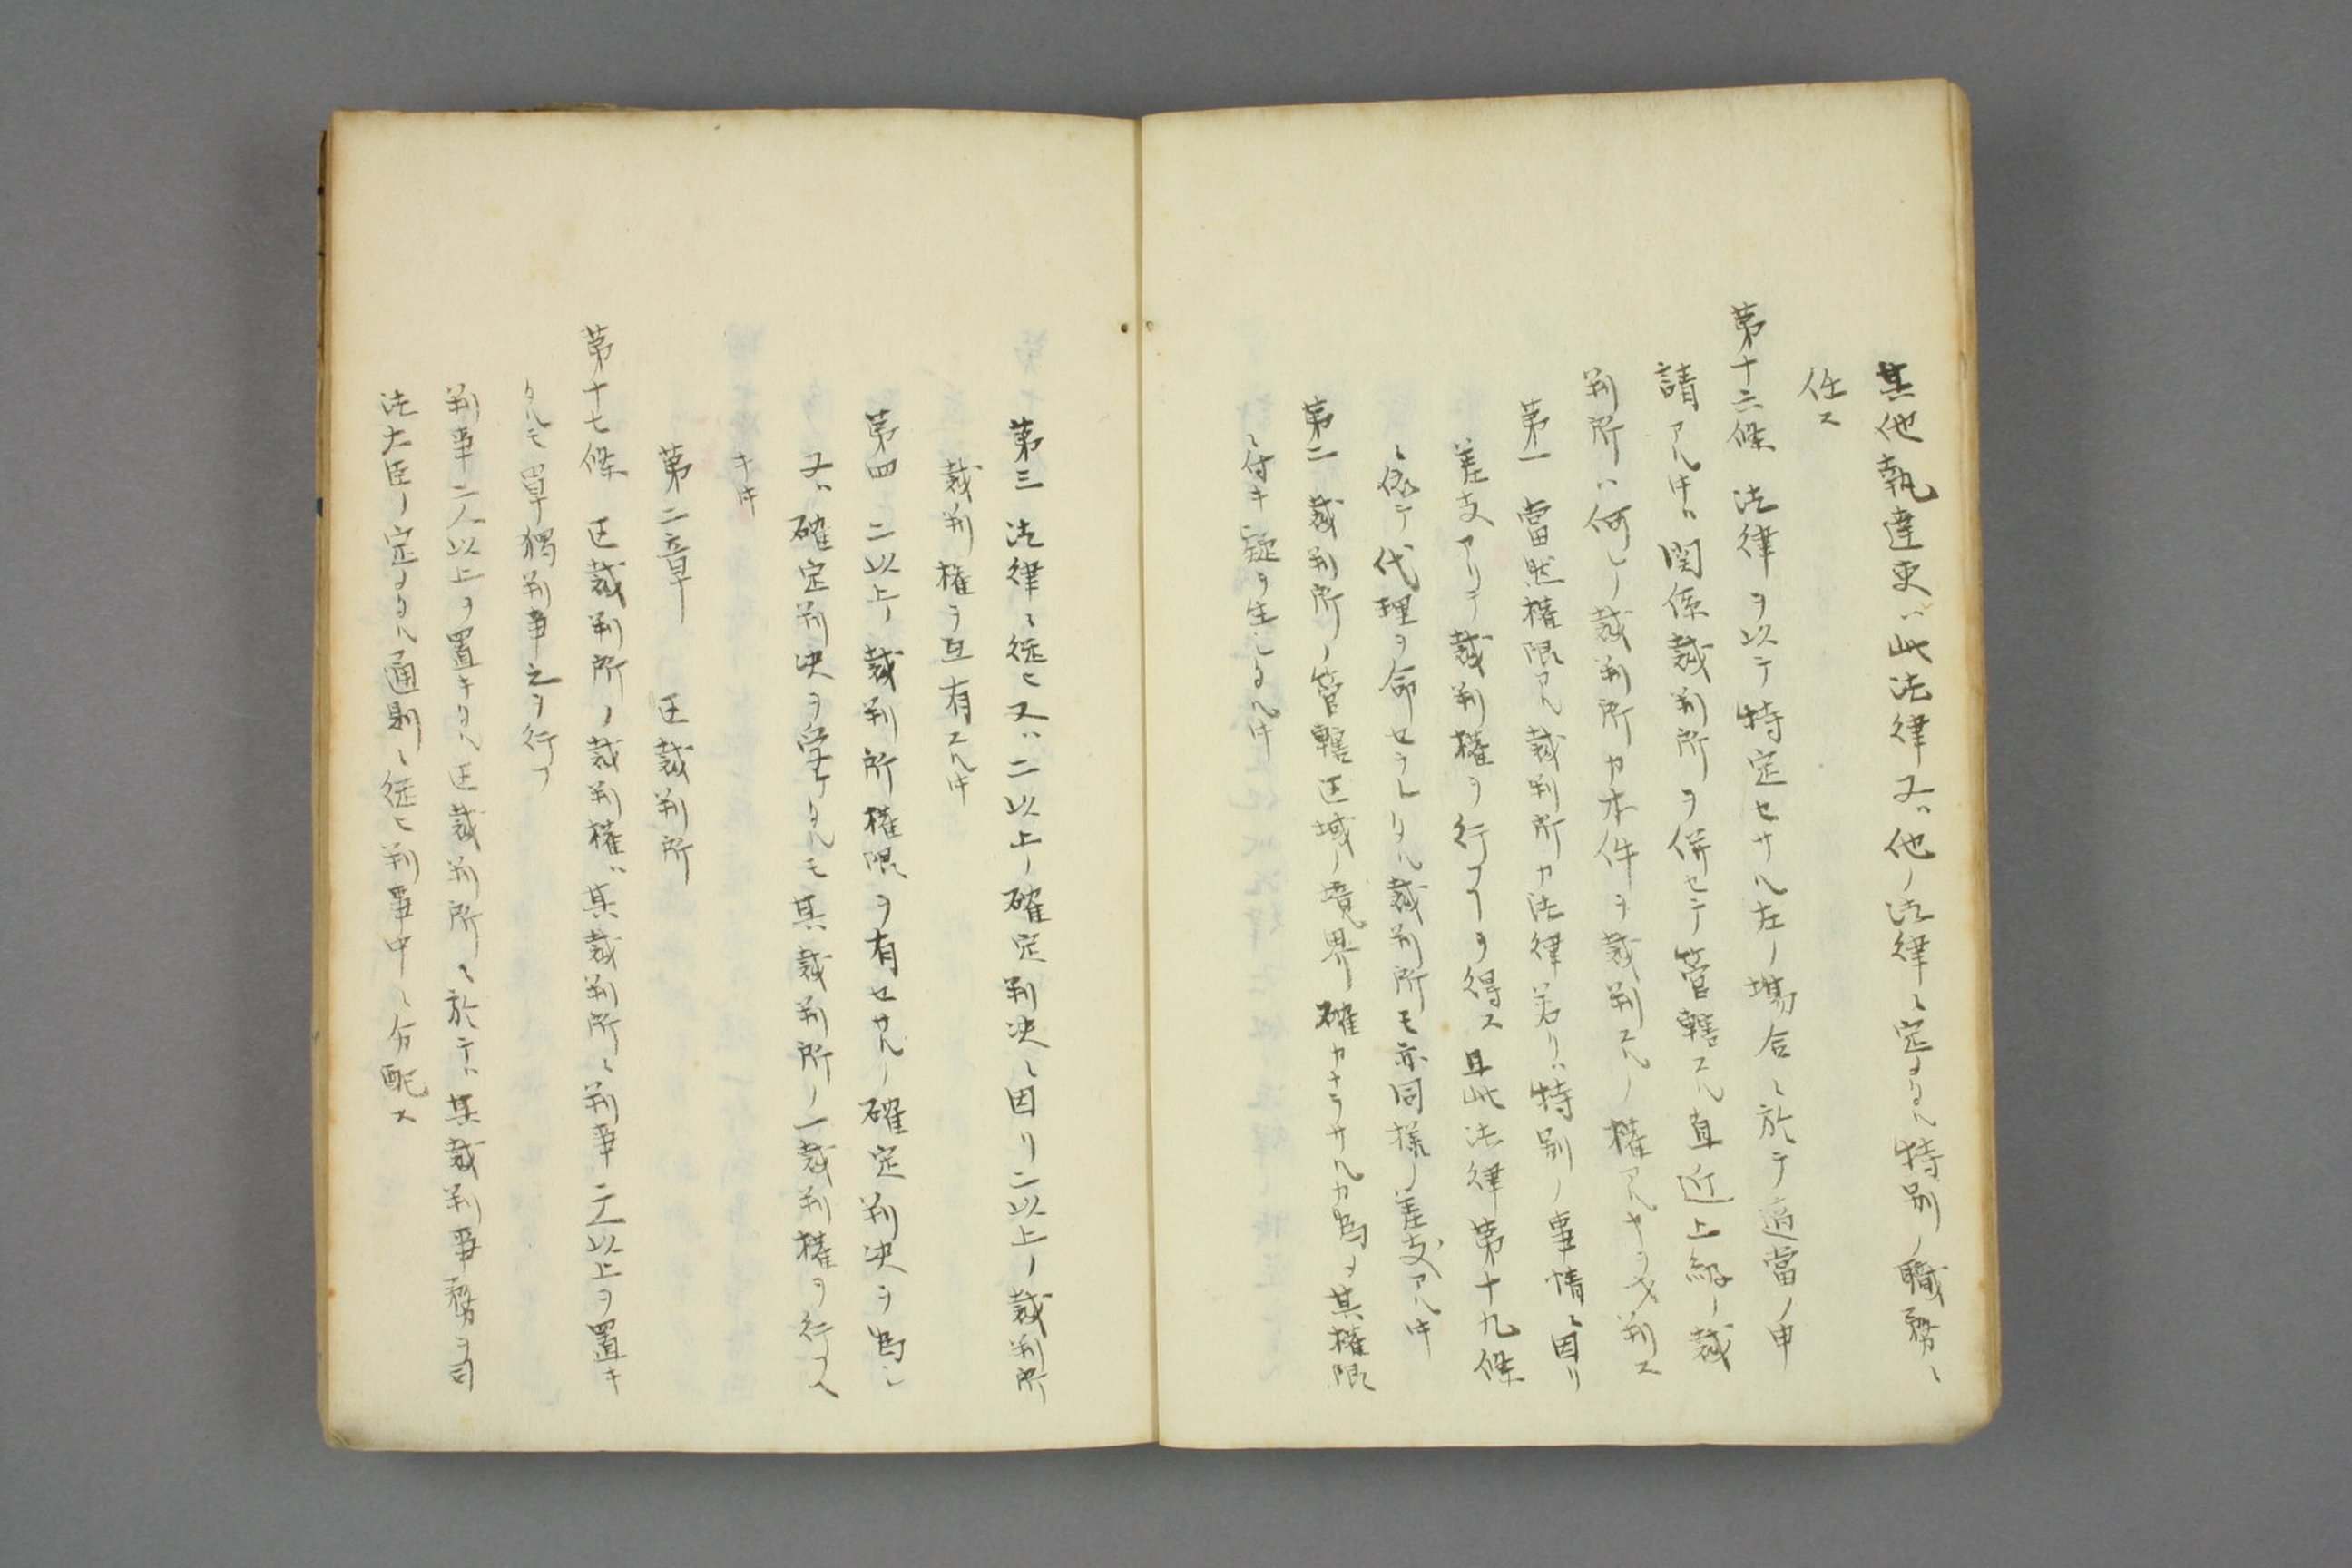 其他執達吏ハ此法律又ハ他ノ法律ニ定メタル特別ノ職務ニ
任ス
第十二條 法律ヲ以テ特定セサル左ノ場合ニ於テ適當ノ申
請アル片ハ関係裁判所ヲ併セテ管轄スル直近上級ノ裁
判所ハ何レノ裁判所カ本件ヲ裁判スルノ權アルヤヲ判ス
第一 當然權限アル裁判所カ法律若クハ特別ノ事情ニ因リ
差支アリテ裁判權ヲ行フヿヲ得ス且此法律第十九條
ニ依テ代理ヲ命セラレタル裁判所モ亦同様ノ差支アル片
第二 裁判所ノ管轄区域ノ境界確カナラサルカ為メ其權限
ニ付キ疑ヲ生シタル片
第三 法律ニ従ヒ又ハ二以上ノ確定判决ニ因リ二以上ノ裁判所
裁判權ヲ互有スル片
第四 二以上ノ裁判所權限ヲ有セサルノ確定判决ヲ為シ
又ハ確定判决ヲ受ケタルモ其裁判所ノ一裁判權ヲ行フヘ
キ片
第二章 区裁判所
第十七條 区裁判所ノ裁判權ハ其裁判所ニ判事二人以上ヲ置キ
タルモ單獨判事之ヲ行フ
判事二人以上ヲ置キタル区裁判所ニ於テハ其裁判事務ヲ司
法大臣ノ定メタル通則ニ従ヒ判事中ニ分配ス